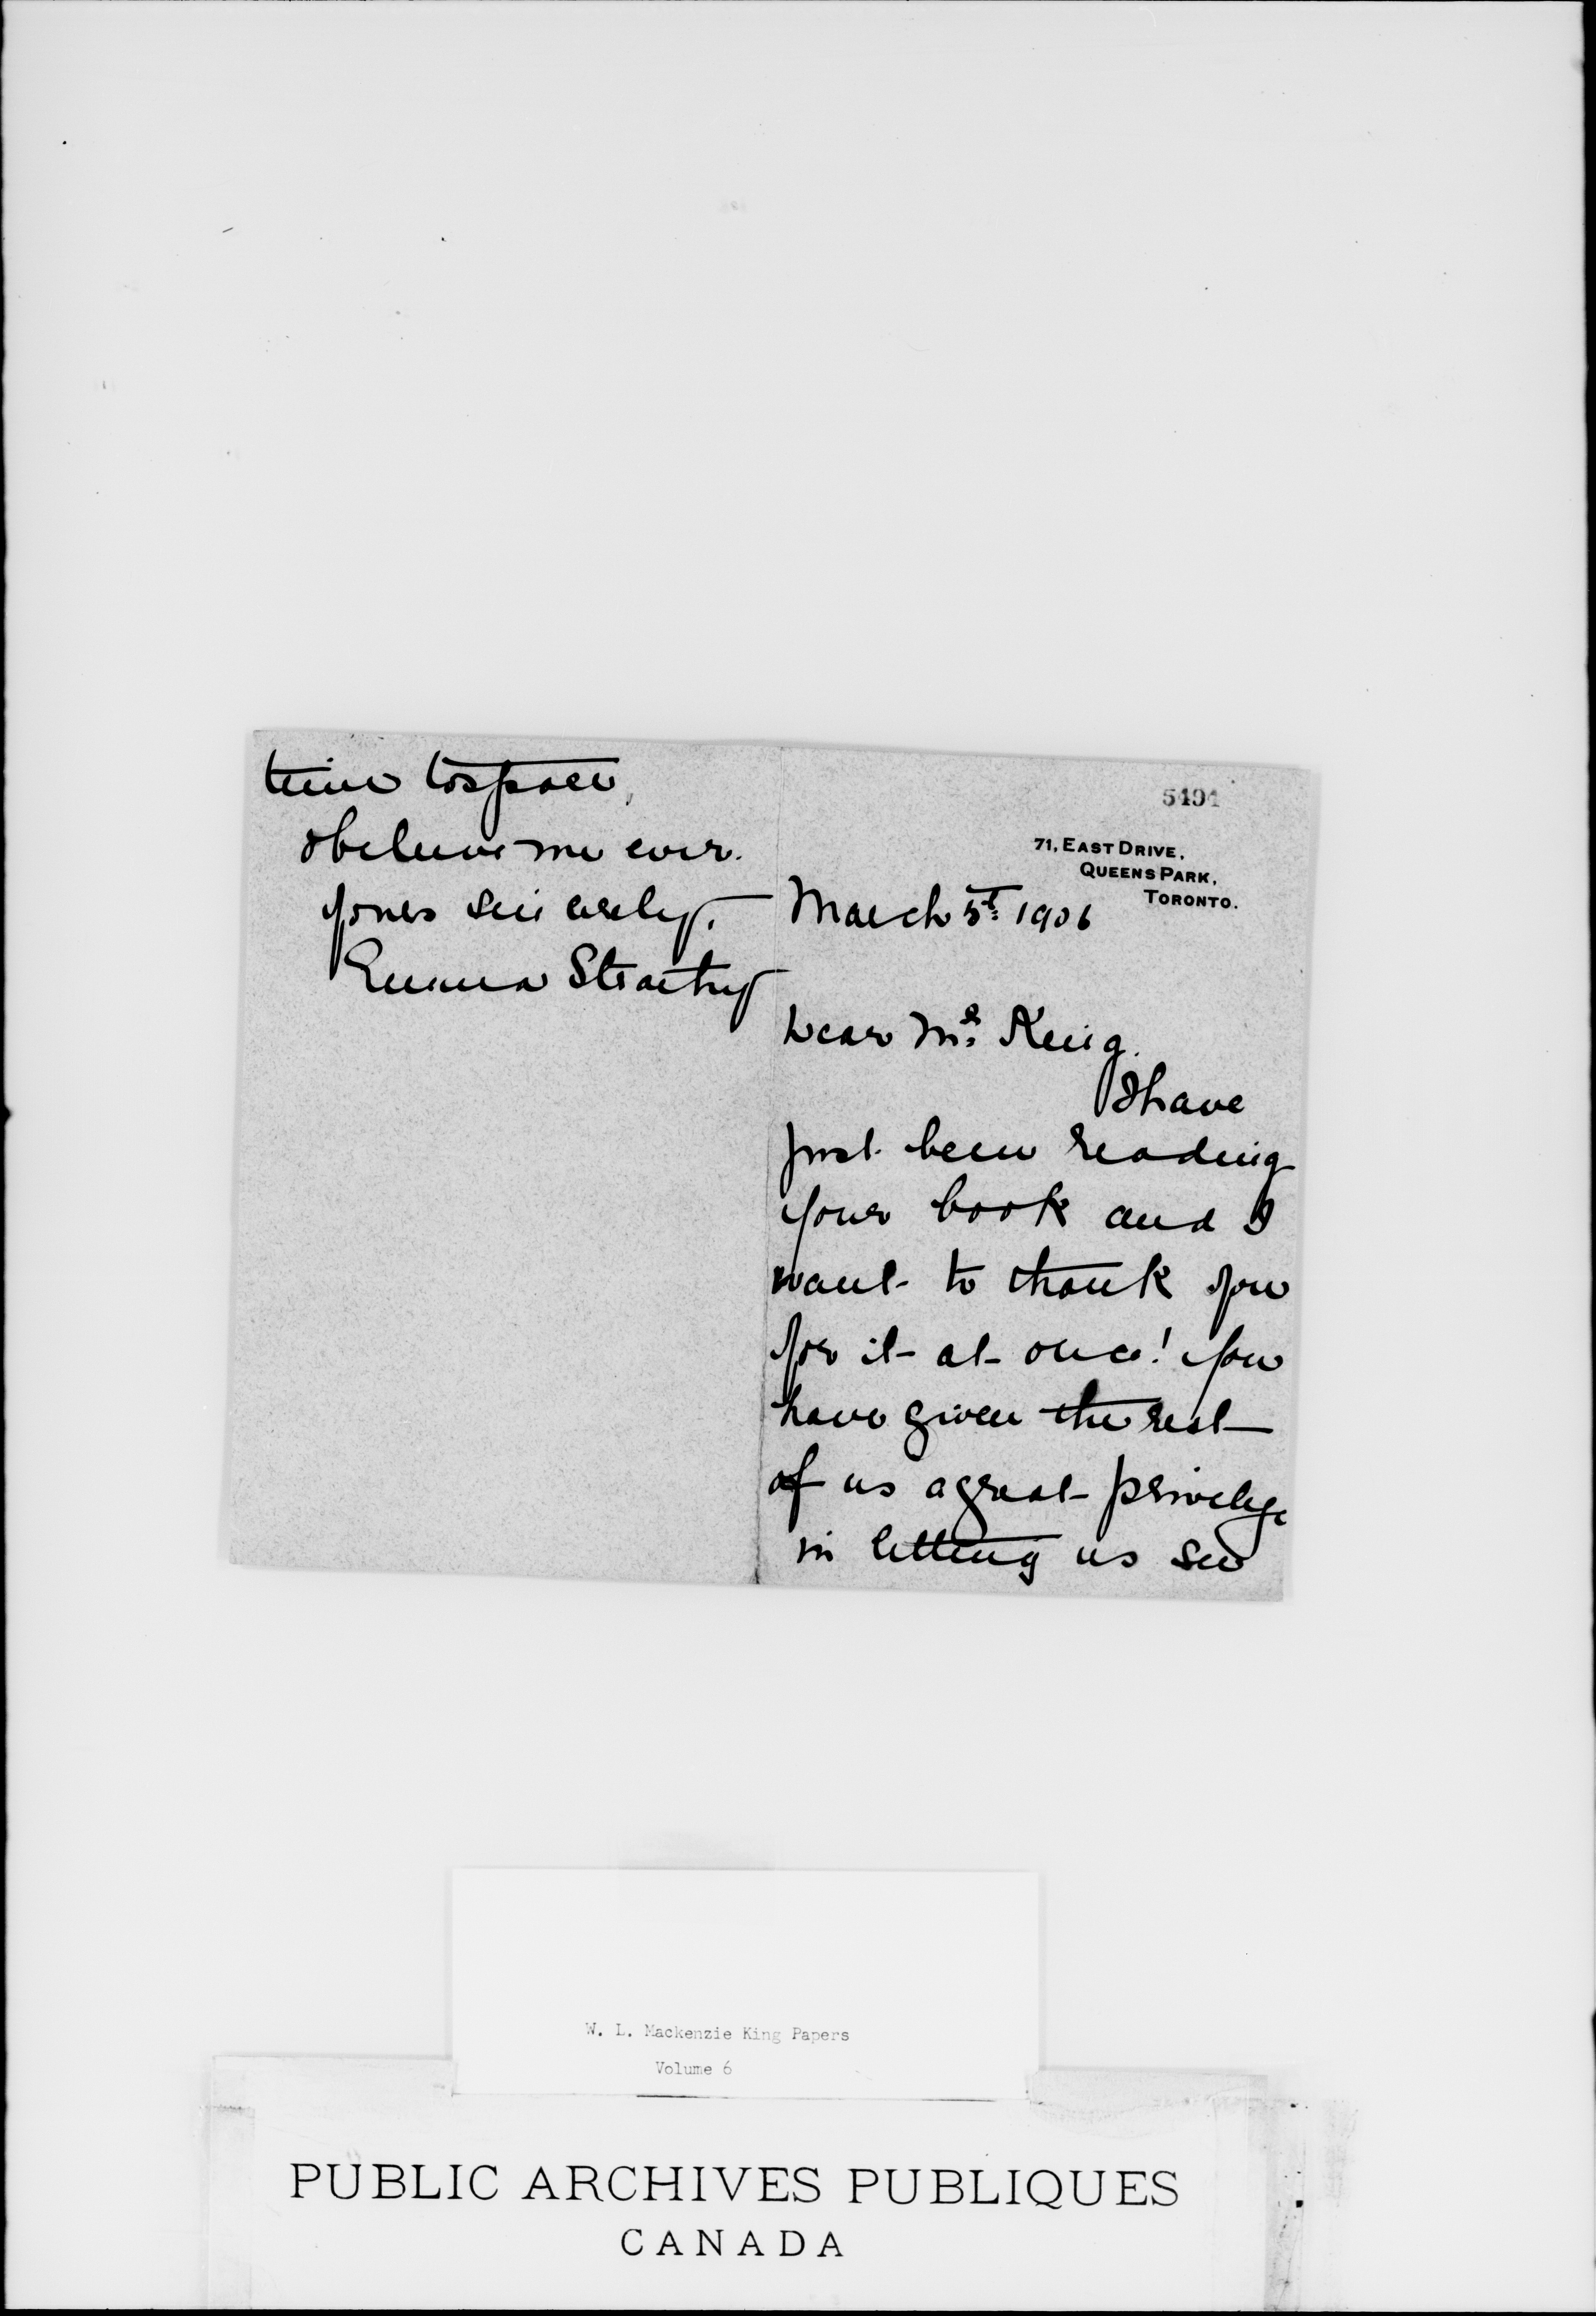 time to spare,
& believe me ever.
yours sincerely.
Emma Strathy
5494
71, EAST DRIVE,
QUEENS PARK,
TORONTO.
March 5th 1906
Dear Mr King.
I have
just been reading
your book and I
want to thank you
for it at once! You
have given the rest
of us a great privilege
in letting us see
W. L. Mackenzie King Papers
Volume 6
PUBLIC ARCHIVES PUBLIQUES
CANADA